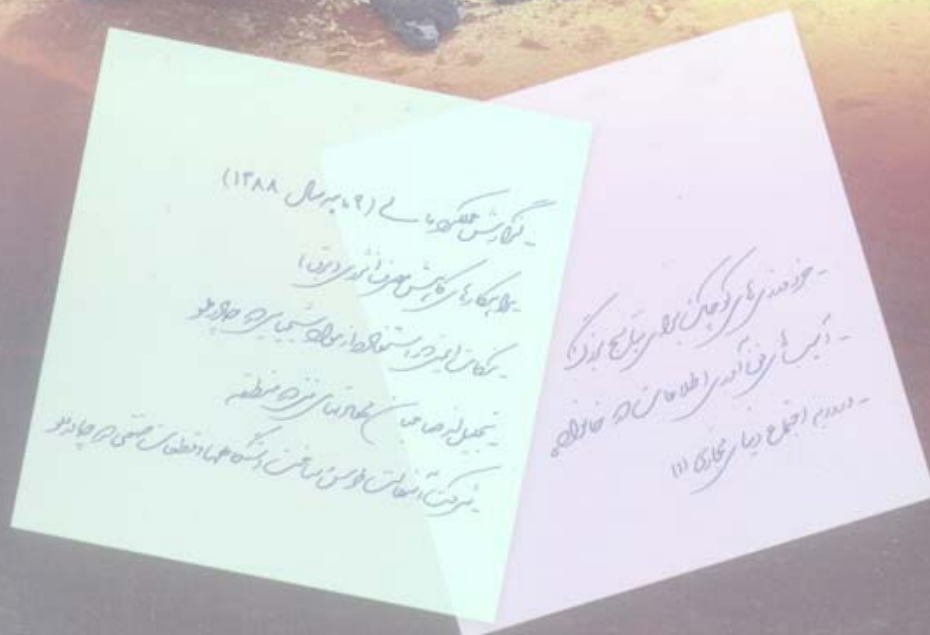 - گزارش عملکرد مالی (۹ ماهه سال ۱۳۸۸)
- راهکارهای کاهش مصرف انرژی (برق)
- نکات ایمنی در استفاده از مواد شیمیایی در چادرملو
- تجلیل از صاحبان نهادهای در منطقه
- شرکت آلمانی ساخت دستگاهها و قطعات صنعتی در چادرملو
- خردورزی‌های کوچک برای نتایج بزرگ
- آسیب‌های فن‌آوری اطلاعات در خانواده
- ورود به اجتماع دنیای مجازی (۱)